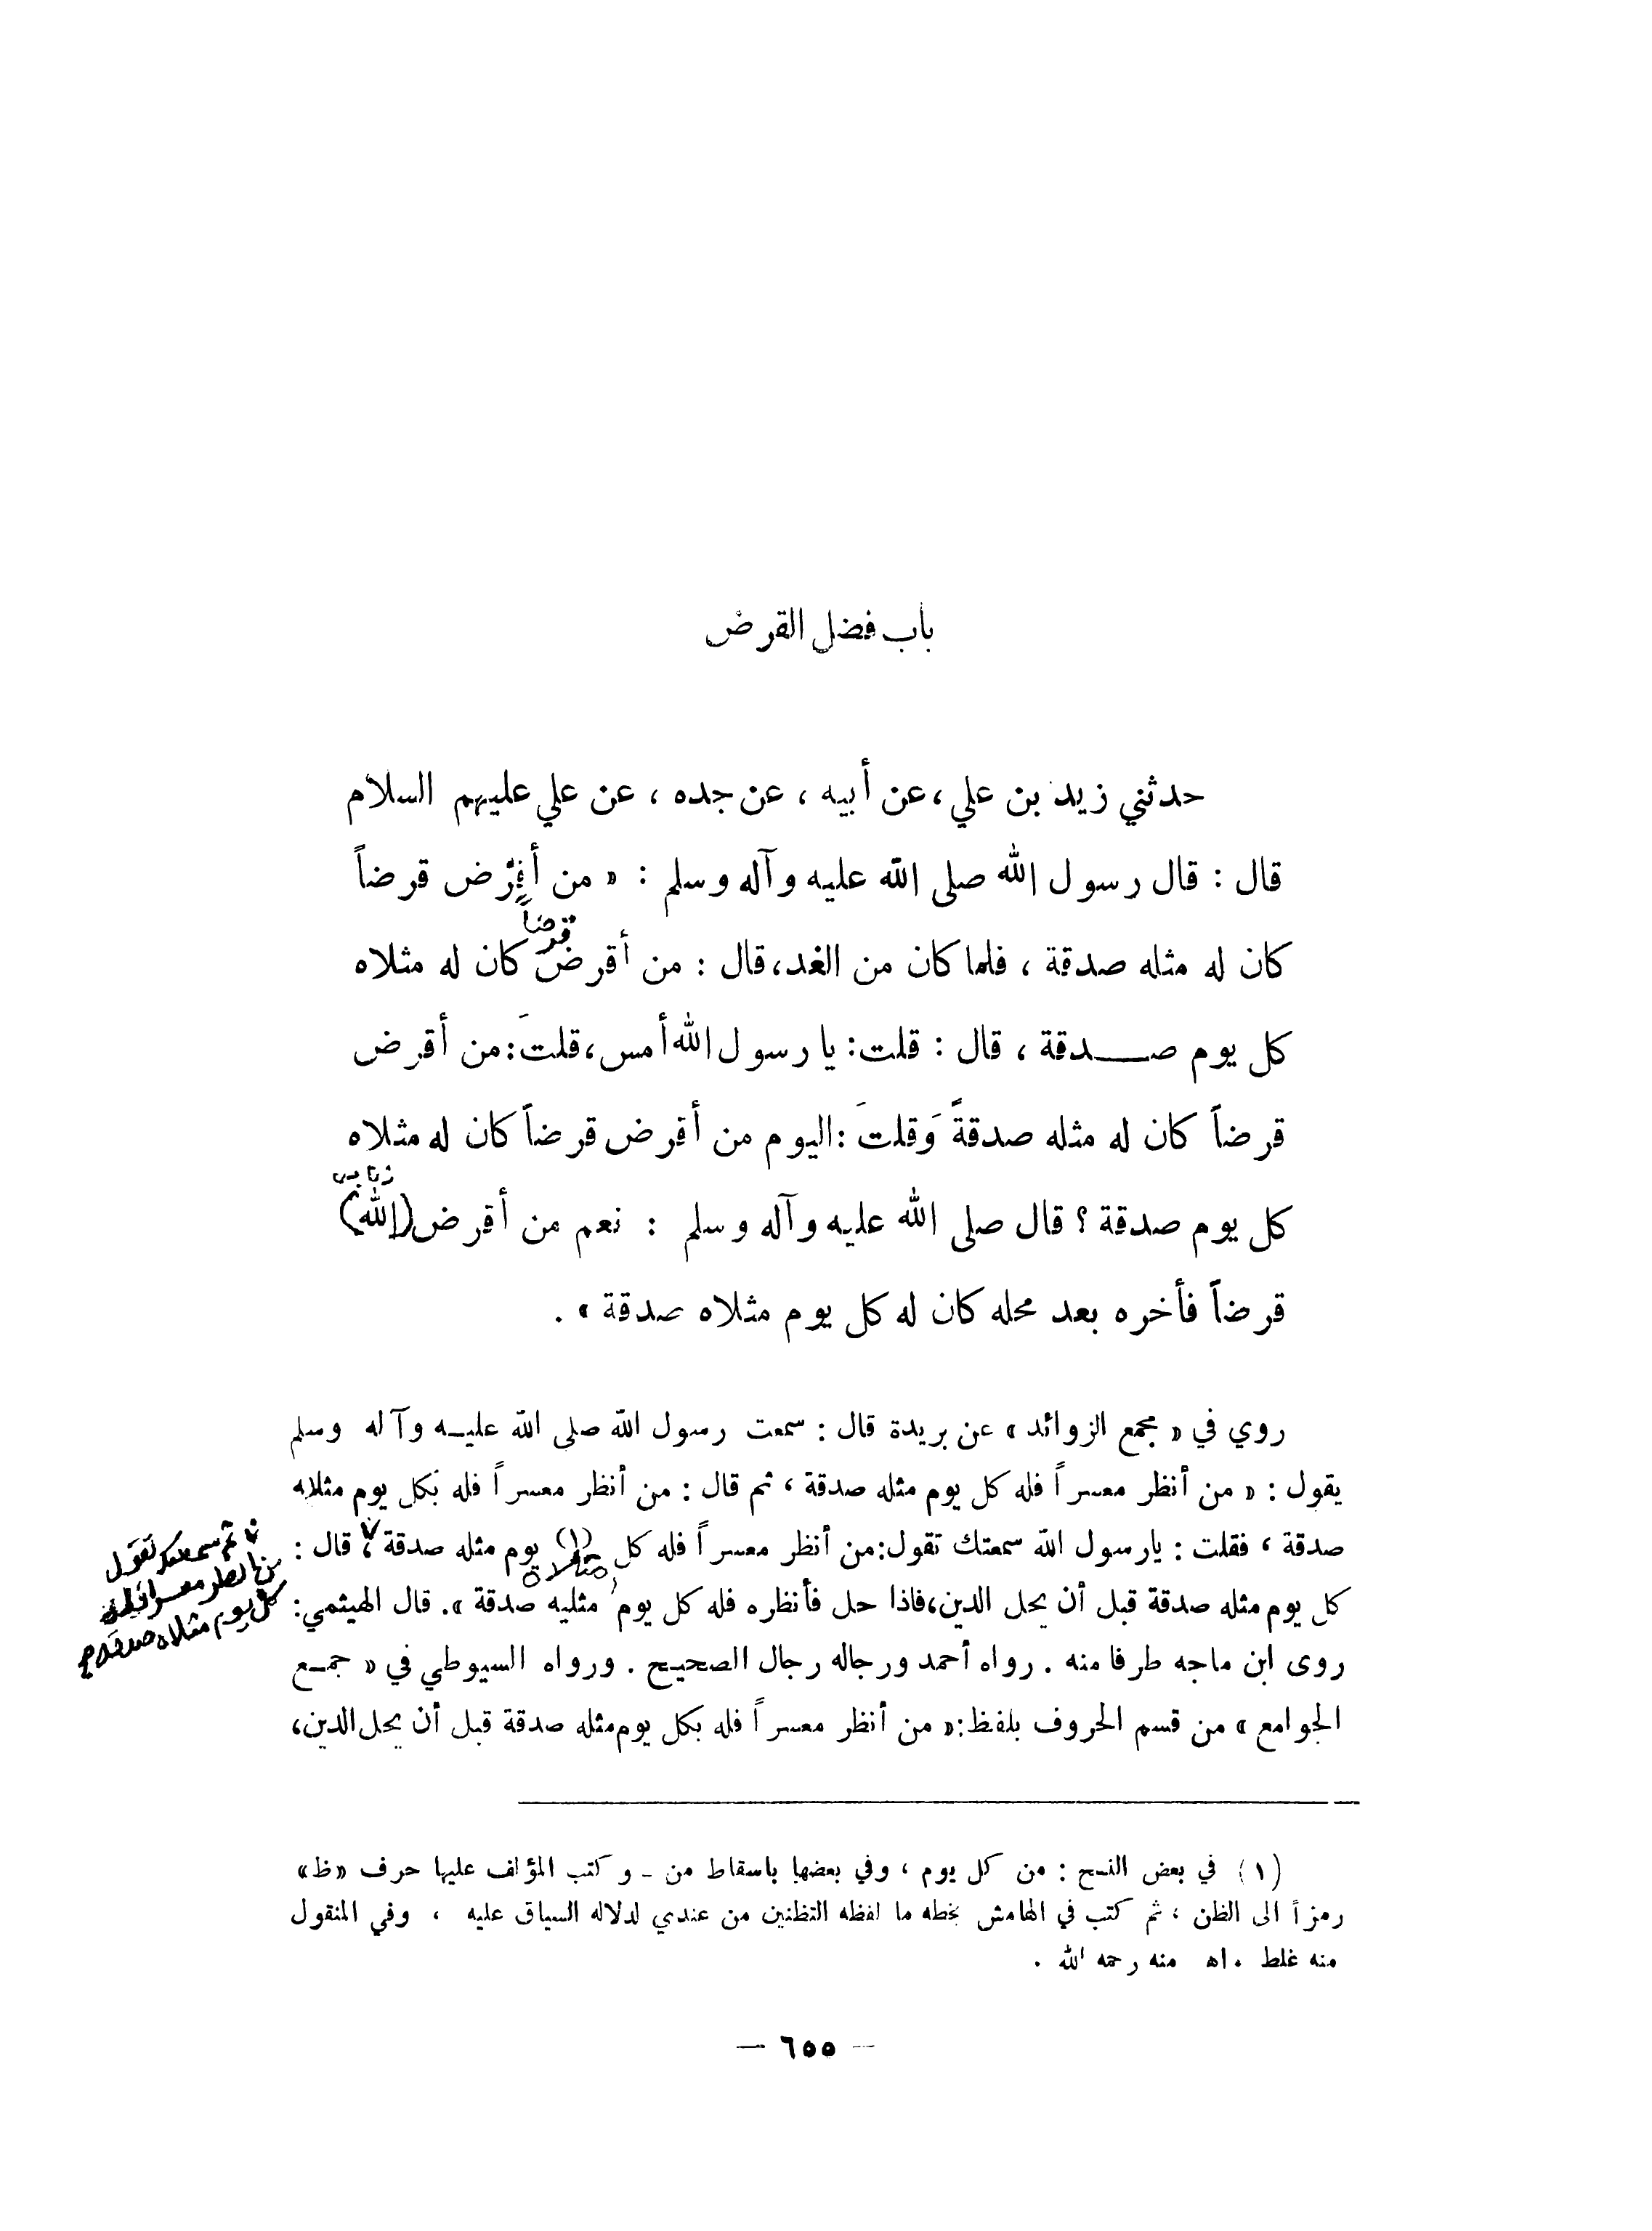 باب فضل القرض
حدثني زيد بن علي ، عن أبيه ، عن جده ، عن علي عليهم السلام
قال : قال رسول الله صلى الله عليه وآله وسلم : « من أقرض قرضاً
كان له مثله صدقة ، فلما كان من الغد ، قال : من أقرض قرضاً كان له مثلاه
كل يوم صــدقة ، قال : قلت : يا رسول الله أمس ، قلتَ : من أقرض
قرضاً كان له مثله صدقةً وَقلتَ : اليوم من أقرض قرضاً كان له مثلاه
كل يوم صدقة ؟ قال صلى الله عليه وآله وسلم : نعم من أقرض (الله)
قرضاً فأخره بعد محله كان له كل يوم مثلاه صدقة » .
روي في « مجمع الزوائد » عن بريدة قال : سمعت رسول الله صلى الله عليــه وآله وسلم
يقول : « من أنظر معسراً فله كل يوم مثله صدقة ، ثم قال : من أنظر معسراً فله بكل يوم مثلاه
صدقة ، فقلت : يارسول الله سمعتك تقول : من أنظر معسراً فله كل (١) يوم مثله صدقة ، قال :
ثم سمعتك تقول
من انظر معسرا فله
كل يوم مثلاه صدقة
كل يوم مثله صدقة قبل أن يحل الدين ، فاذا حل فأنظره فله كل يوم مثليه صدقة » . قال الهيثمي :
روى ابن ماجه طرفا منه . رواه أحمد ورجاله رجال الصحيح . ورواه السيوطي في « جمـع
الجوامع » من قسم الحروف بلفظ : « من أنظر معسراً فله بكل يوم مثله صدقة قبل أن يحل الدين ،
(١) في بعض النسخ : من كل يوم ، وفي بعضها باسقاط من ـ وكتب المؤلف عليها حرف « ظ »
رمزاً الى الظن ، ثم كتب في الهامش بخطه ما لفظه التظنين من عندي لدلاله السياق عليه ، وفي المنقول
منه غلط . اه منه رحمه الله .
— ٦٥٥ —